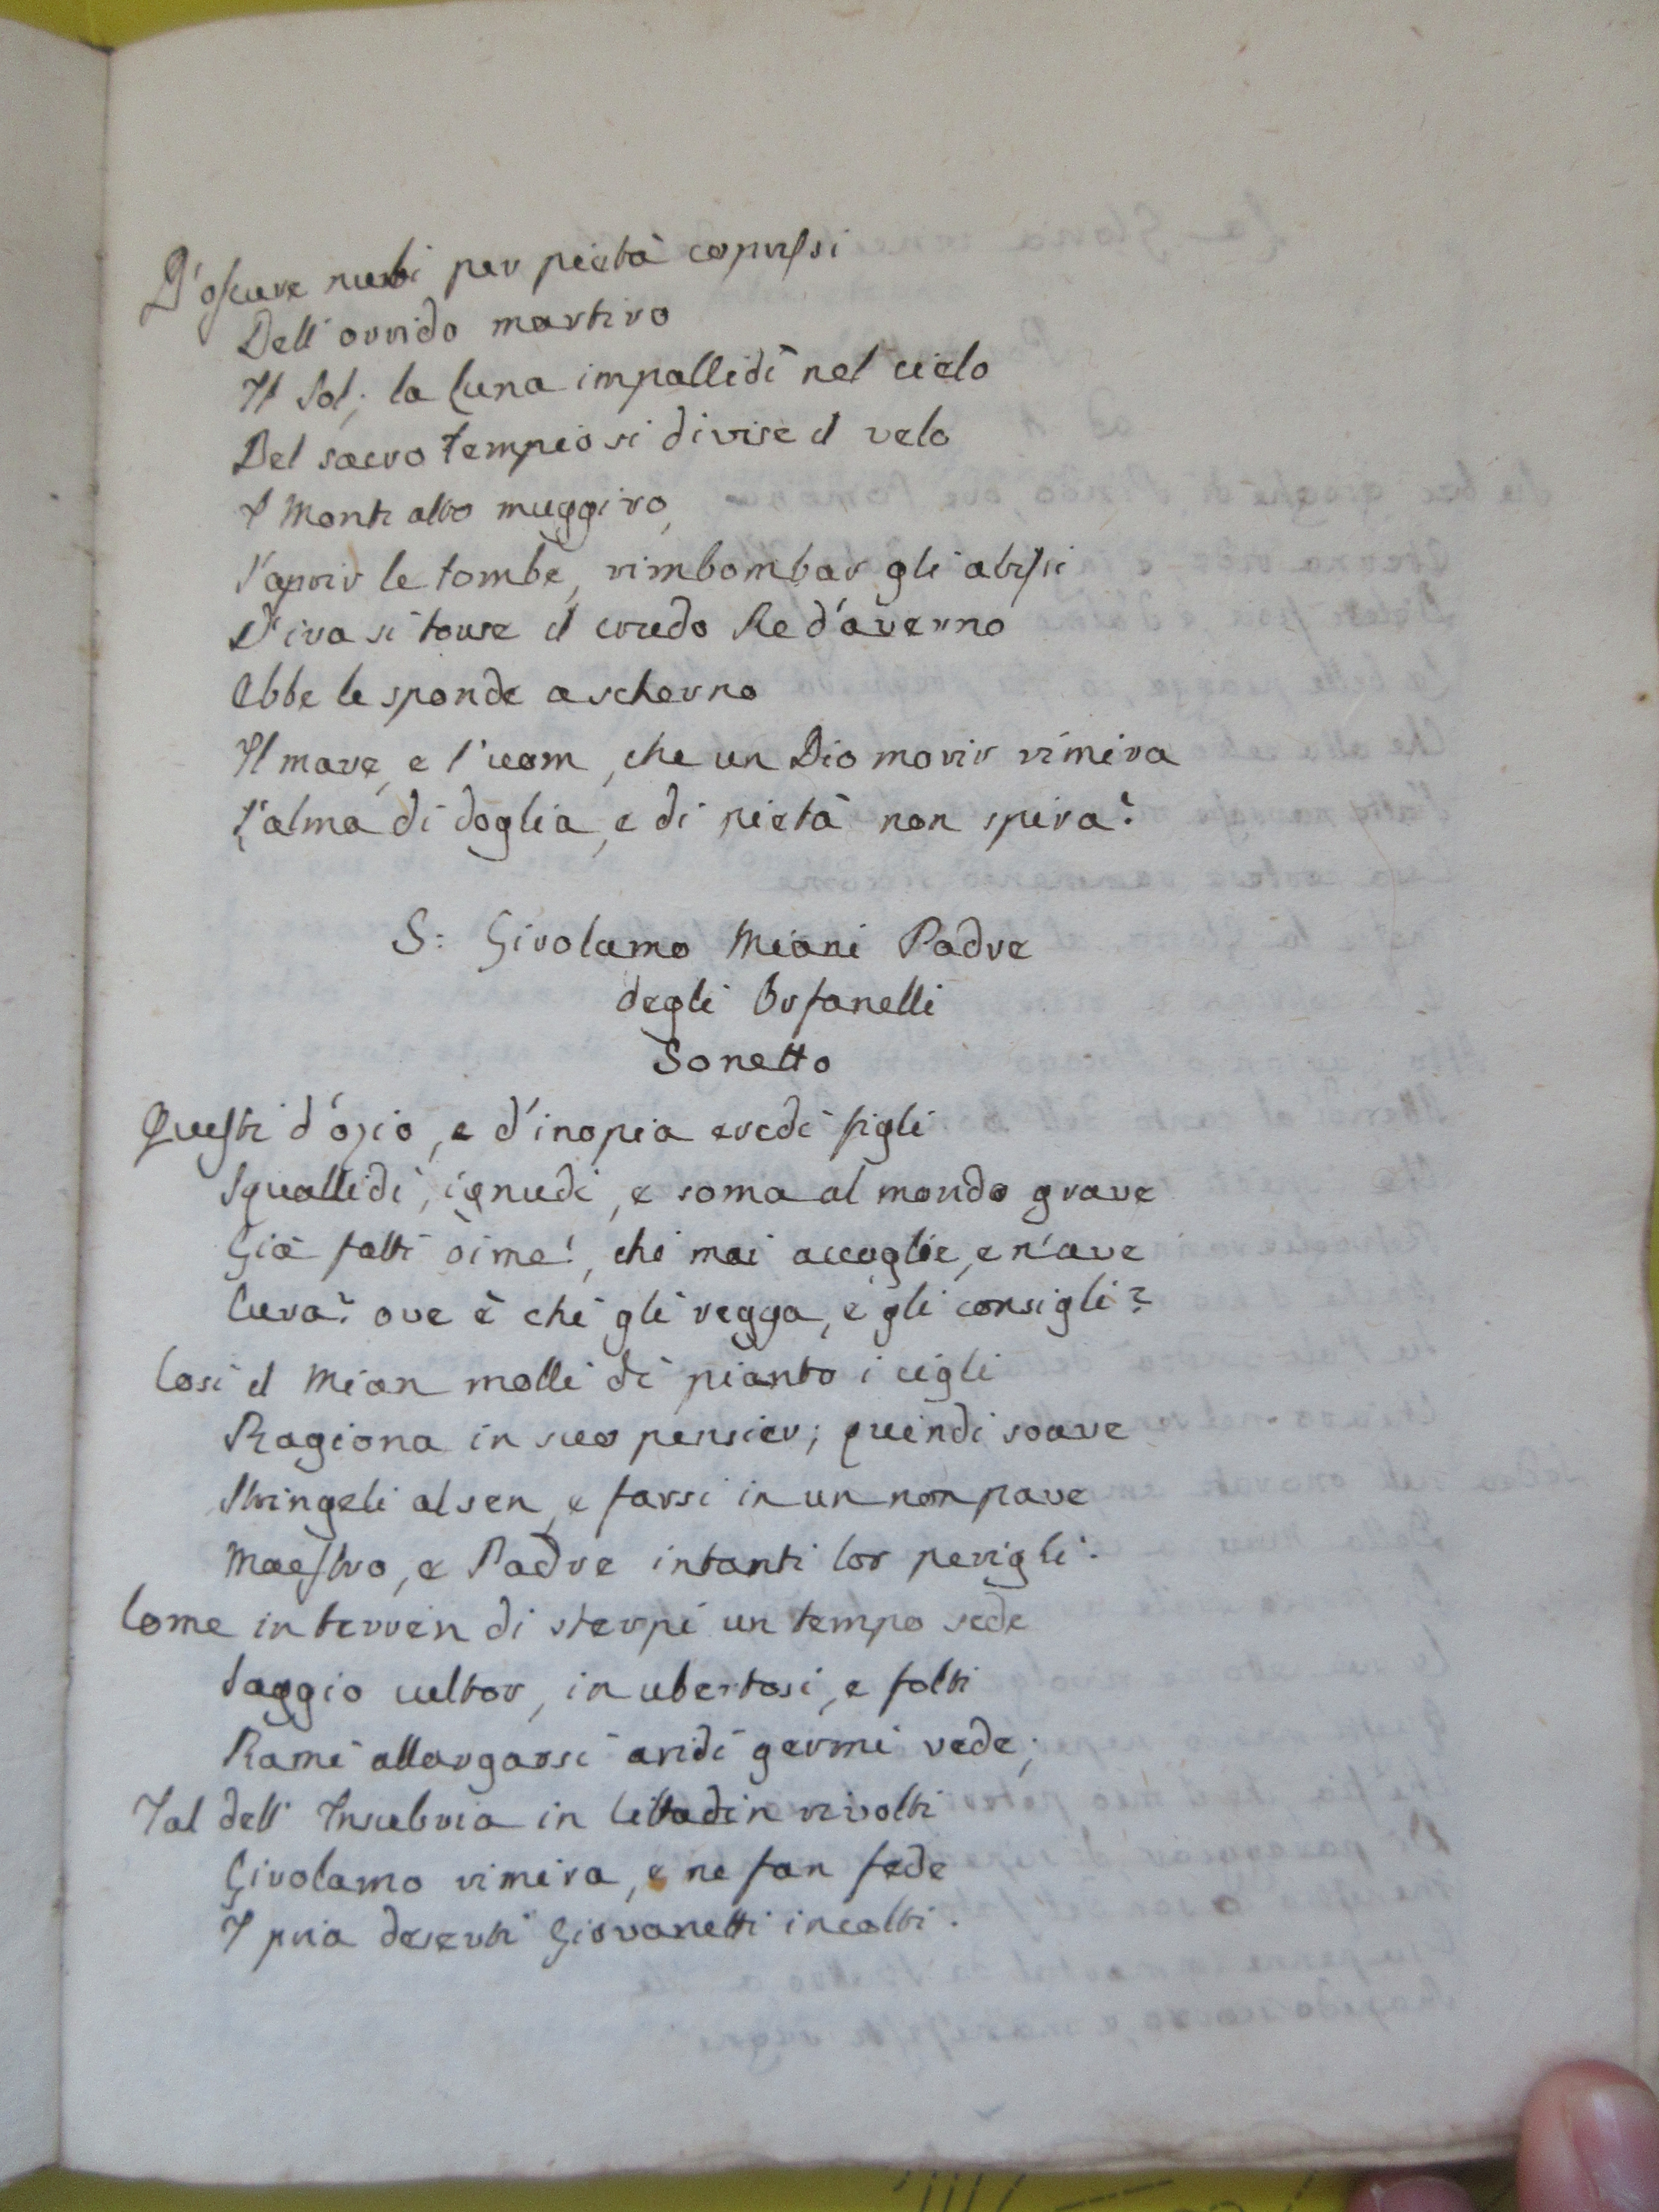 D'oscure nubi per pietà coprissi
Dell'orrido martiro
Il Sol; la Luna impallidì nel cielo
Del sacro Tempio si divise il velo
I Monti alto muggiro,
S'aprir le tombe, rimbombar gli abissi
D'ira si torse il crudo Re d'averno
Ebbe le sponde a scherno
Il mare, e l'uom, che un Dio morir rimira
L'alma di doglia, e di pietà non spira?
S: Girolamo Miani Padre
degli Orfanelli
Sonetto
Questi d'ozio, e d'inopia eredi figli
Squallidi, ignudi, e soma al mondo grave
Già fatti oimè!, chi mai accoglie, e n'ave
Cura? ove è chi gli regga, e gli consigli?
Così il Mian molli di pianto i cigli
Ragiona in suo pensier; quindi soave
Stringeli al sen, e farsi in un non pave
Maestro, e Padre in tanti lor perigli.
Come in terren di sterpi un tempo sede
Saggio cultor, in ubertosi, e folti
Rami allargarsi aridi germi vede;
Tal dell'Insubria in Cittadin rivolti
Girolamo rimira, e ne fan fede
I pria deserti Giovanetti incolti.